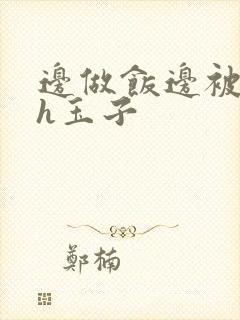 邊做飯邊被
h玉子
鄭楠